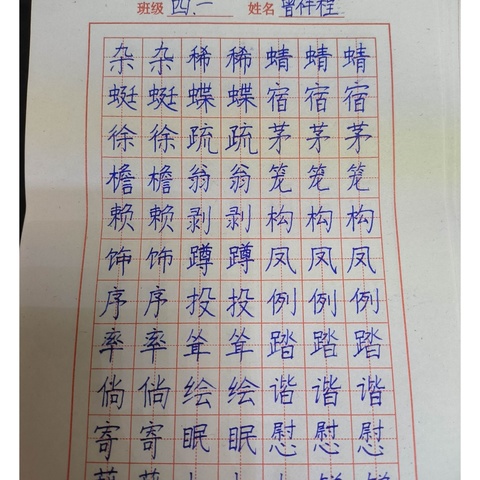 班级 四.一 姓名 曾梓程
杂杂稀稀蜻蜻蜻
蜓蜓蝶蝶宿宿宿
徐徐疏疏茅茅茅
檐檐翁翁笼笼笼
赖赖剥剥构构构
饰饰蹲蹲凤凤凤
序序投投例例例
率率耸耸踏踏踏
倘倘绘绘谐谐谐
寄寄眠眠慰慰慰